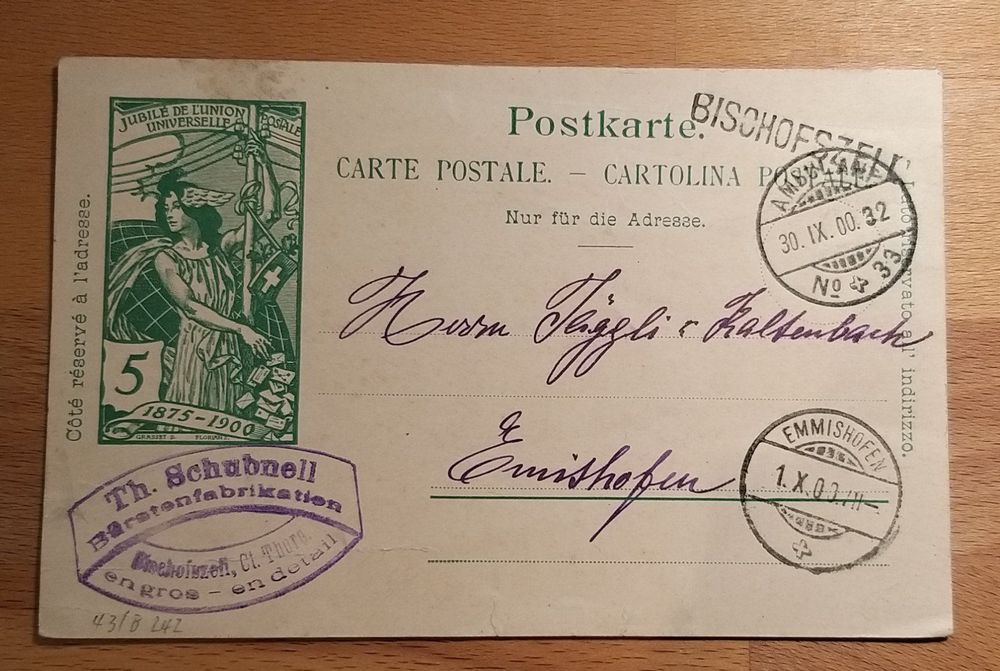 JUBILÉ DE L'UNION
UNIVERSELLE POSTALE
5
1875-1900
GRASSET D. FLORIAN S.
Côté réservé à l'adresse.
Postkarte.
CARTE POSTALE. — CARTOLINA POSTALE.
Nur für die Adresse.
BISCHOFSZELL
AMBULANT
30. IX. 00. 32
No 33
Herrn Täggli & Kaltenbach
Emishofen
EMMISHOFEN
1. X. 00. VII-
Lato riservato all' indirizzo.
Th. Schubnell
Bürstenfabrikation
Bischofszell, Ct. Thurg.
en gros - en détail
43/B 242